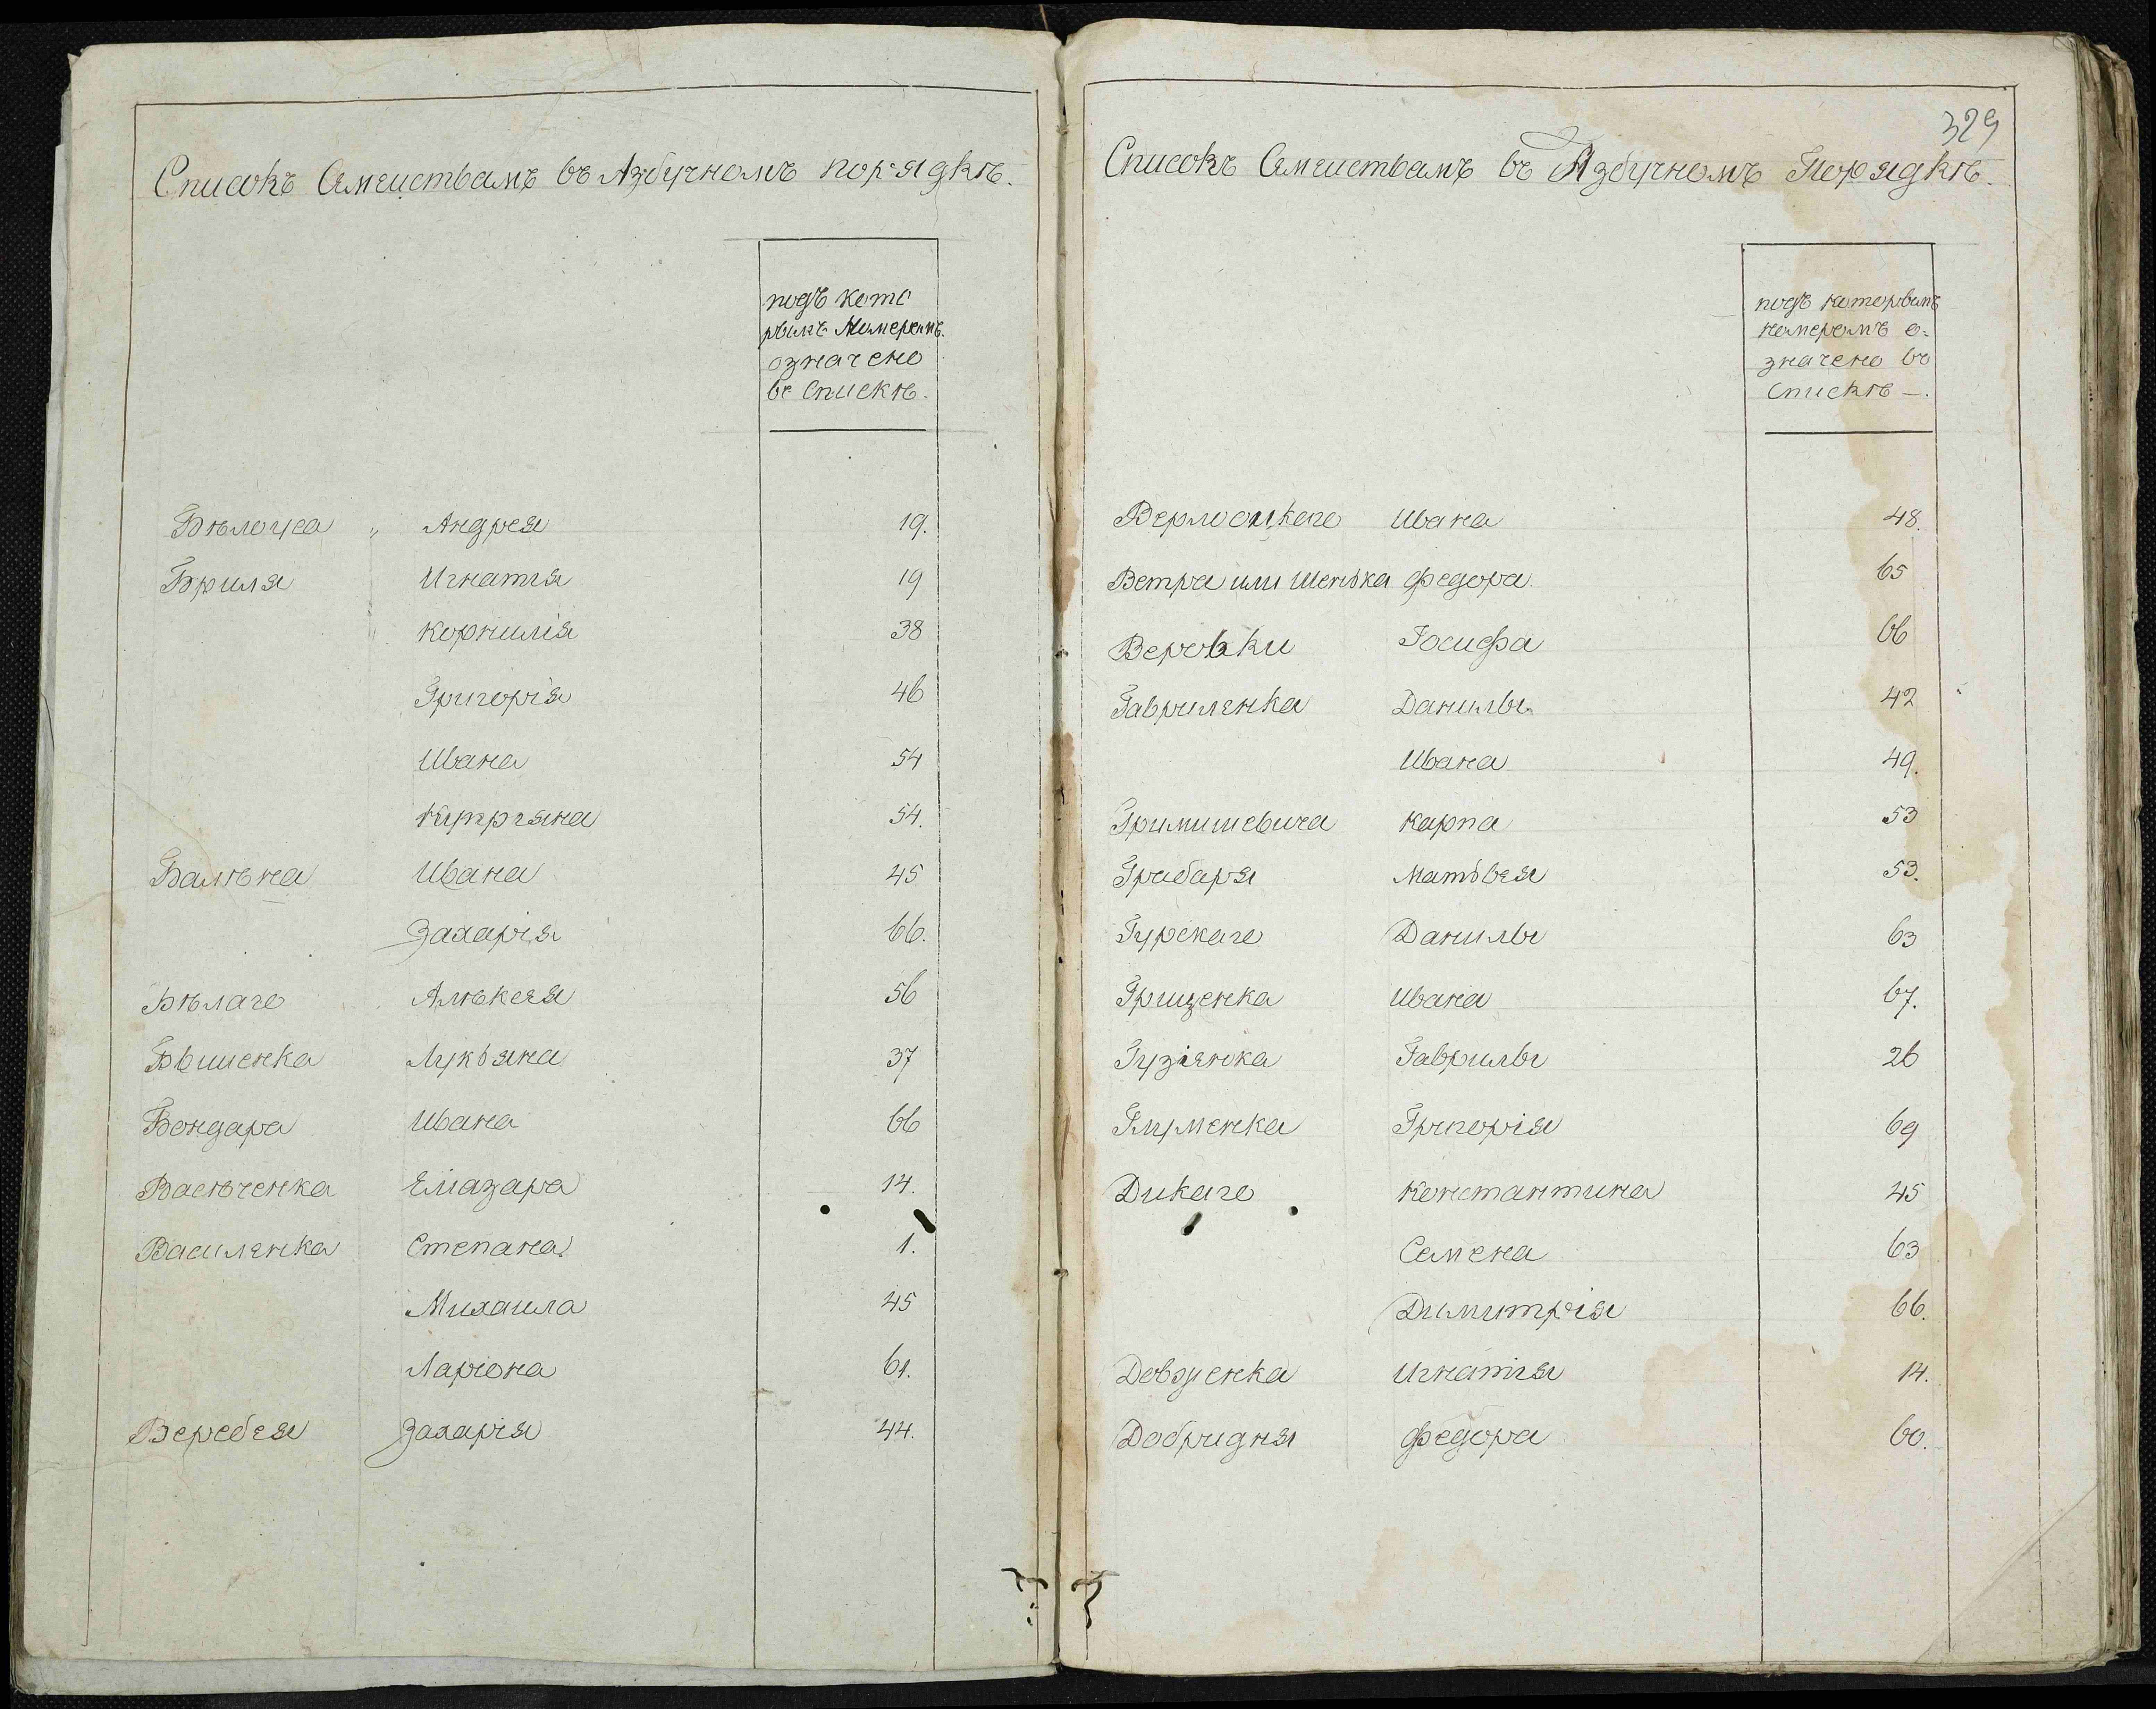 Списокъ Семеиствамъ въ Азбучномъ порядкѣ.
подъ кото
рымъ Номеромъ.
означено
въ Спискѣ.
Бѣлоуса " Андрея 19.
Бриля Игнатія 19
Корнилія 38
Григорія 46
Ивана 54
Кипріяна 54.
Ивана 45
Захарія 66.
Бѣлаго Алѣксея 56
Лукьяна 37
Бондара Ивана 66
Васѣченка Еліазара 14.
Василенка Степана 1.
Михаила 45
Ларіона 61.
Веребея Захарія 44.
329
Списокъ Семеиствамъ въ Азбучномъ Порядкѣ.
подъ которымъ
номеромъ о=
значено въ
Спискѣ —.
Ивана 48.
Ветра или Шенька Федора. 65
Веровки Іосифа 66
Гавриленка Данилы 42
Ивана 49.
Карпа 53
Грабаря Матьвея 53.
Гурскаго Данилы 63
Грищенка Ивана 67.
Гузіенка Гаврилы 26
Григорія 69
Дикаго Константина 45
Семена 63
Димитрія 66.
Довженка Игнатія 14.
Добридня Федора 60.